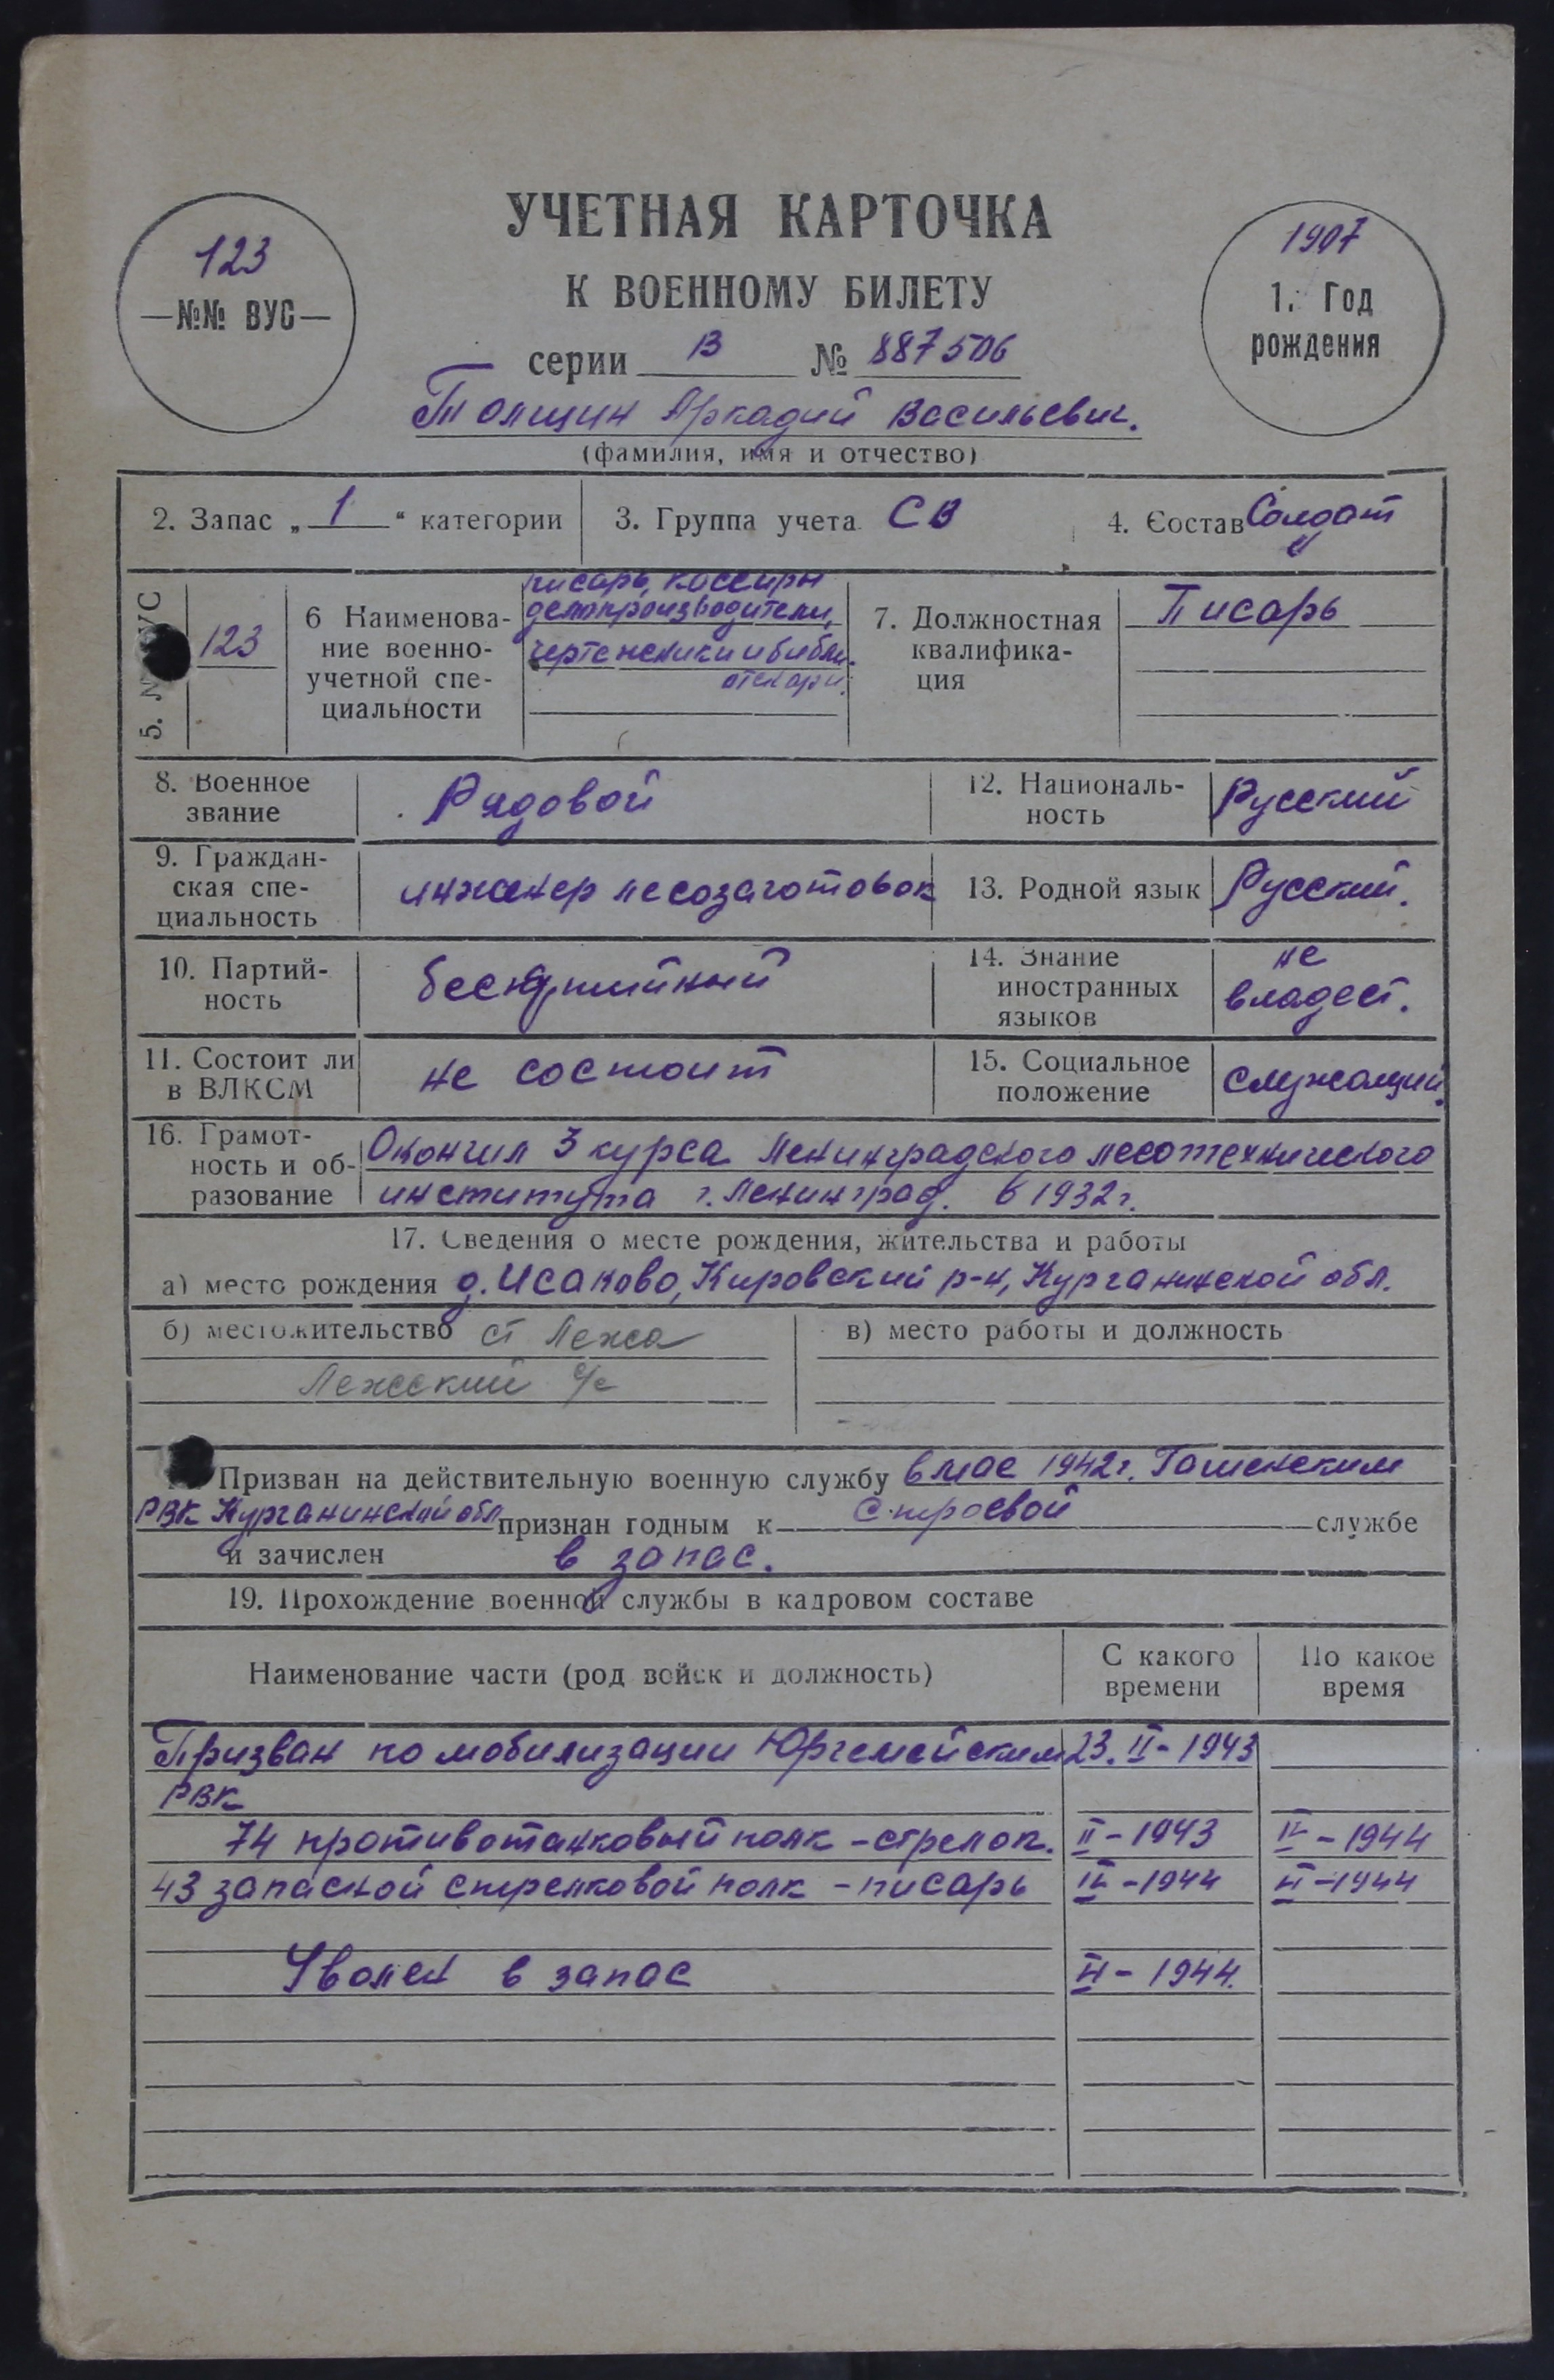 УЧЕТНАЯ КАРТОЧКА
К ВОЕННОМУ БИЛЕТУ
123
—№№ ВУС—
1907
1. Год
рождения
серии В № 887506
Толщин Аркадий Васильевич.
(фамилия, имя и отчество)
2. Запас „ 1 “ категории
3. Группа учета СВ
4. Состав Солдат
5. № ВУС
123
6 Наименова-
ние военно-
учетной спе-
циальности
писарь, кассиры
делопроизводители,
чертежники и библи-
отекари.
7. Должностная
квалифика-
ция
Писарь
8. Военное
звание
Рядовой
12. Националь-
ность
Русский
9. Граждан-
ская спе-
циальность
инженер лесозаготовок
13. Родной язык
Русский.
10. Партий-
ность
беспартийный
14. Знание
иностранных
языков
не
владеет.
11. Состоит ли
в ВЛКСМ
не состоит
15. Социальное
положение
служащий.
16. Грамот-
ность и об-
разование
Окончил 3 курса Ленинградского лесотехнического
института г. Ленинград. в 1932 г.
17. Сведения о месте рождения, жительства и работы
а) место рождения д. Исаково, Кировский р-н, Курганинской обл.
б) местожительство ст Лежа
Лежский с/с
в) место работы и должность
Призван на действительную военную службу в мае 1942 г.
РВК Курганинской обл признан годным к строевой службе
и зачислен в запас.
19. Прохождение военной службы в кадровом составе
Наименование части (род войск и должность)
С какого
времени
По какое
время
Призван по мобилизации Юргемейским 23. II - 1943
РВК
74 противотанковый полк - стрелок. II - 1943 IV - 1944
43 запасной стрелковой полк - писарь IV - 1944 XI - 1944
Уволен в запас XI - 1944.